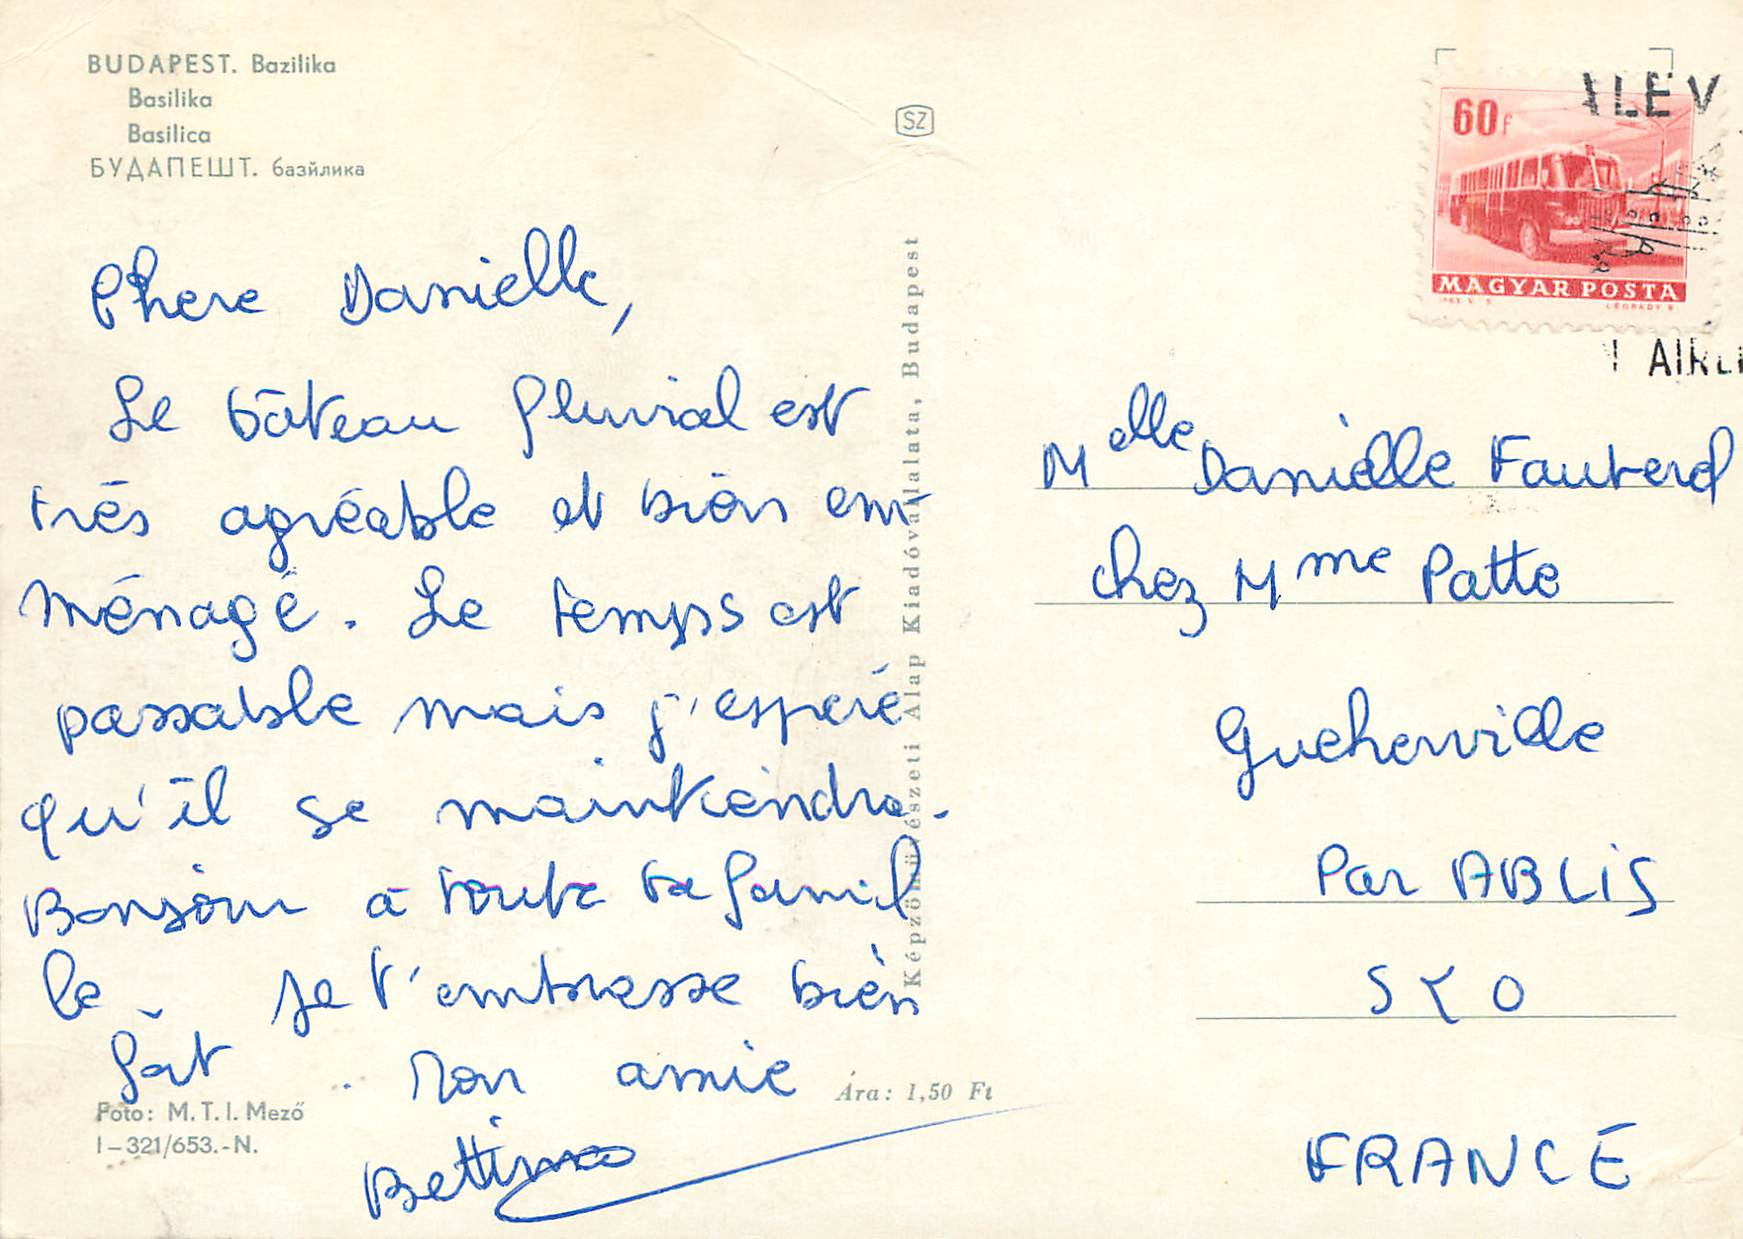 BUDAPEST. Bazilika
Basilika
Basilica
БУДАПЕШТ. базйлика
SZ
60f
MAGYAR POSTA
Képzőművészeti Alap Kiadóvállalata, Budapest
Chere Danielle,
Le bâteau fluvial est
trés agréable et bien em-
ménagé. Le temps est
passable mais j'espére
qu'il se maintiendra.
Bonjour a toute ta famil
le. Je t'embrasse bien
fort. Ton amie
Bettina
Foto: M. T. I. Mező
I–321/653.-N.
Ára: 1,50 Ft
Melle Danielle Fauterd
chez Mme Patte
Gueherville
Par ABLIS
FRANCE